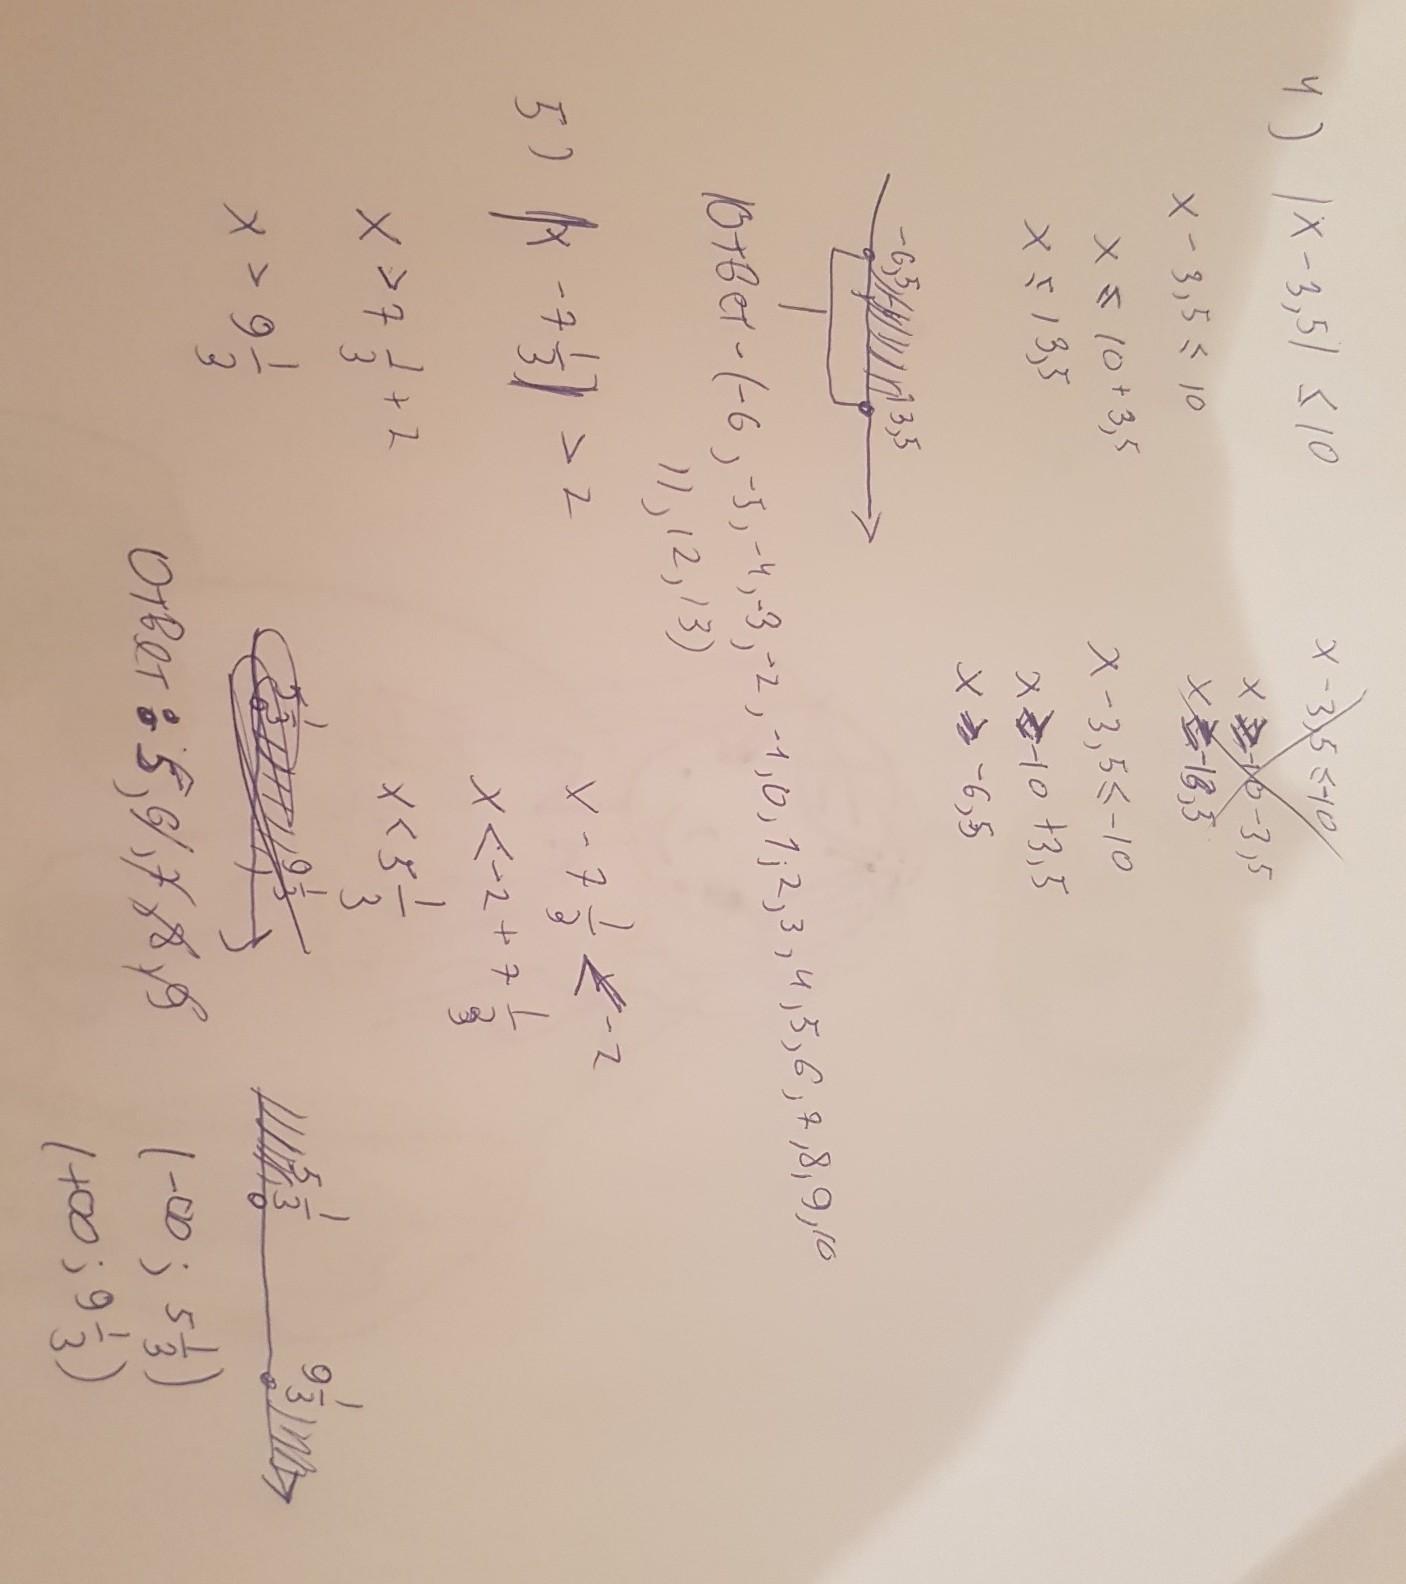 4) |x - 3,5| ≤ 10
x - 3,5 ≤ 10
x ≤ 10 + 3,5
x ≤ 13,5
x - 3,5 ≤ -10
x -10 - 3,5
x - 3,5 ≤ -10
x ≥ -10 + 3,5
x ≥ -6,5
-6,5 13,5
Ответ - (-6, -5, -4, -3, -2, -1, 0, 1; 2, 3, 4, 5, 6, 7, 8, 9, 10
11, 12, 13)
5) |x - 7 1/3| > 2
x > 7 1/3 + 2
x > 9 1/3
x - 7 1/3 < -2
x < -2 + 7 1/3
x < 5 1/3
5 1/3 9 1/3
Ответ: 5, 6, 7, 8, 9
5 1/3 9 1/3
(-∞; 5 1/3)
(+∞; 9 1/3)